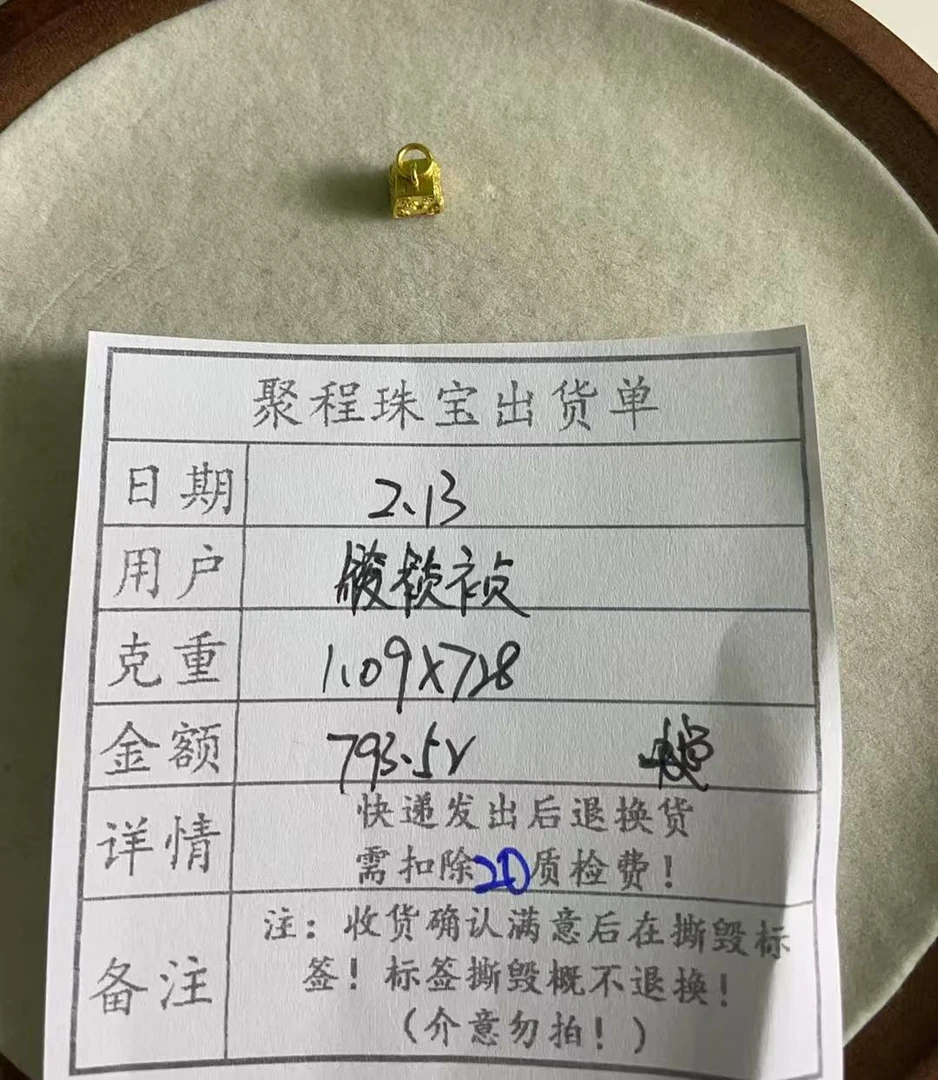 聚程珠宝出货单
日期 2.13
用户
克重 1.09X728
金额 793.5Y
详情 快递发出后退换货
需扣除20质检费！
备注 注：收货确认满意后在撕毁标
签！标签撕毁概不退换！
（介意勿拍！）